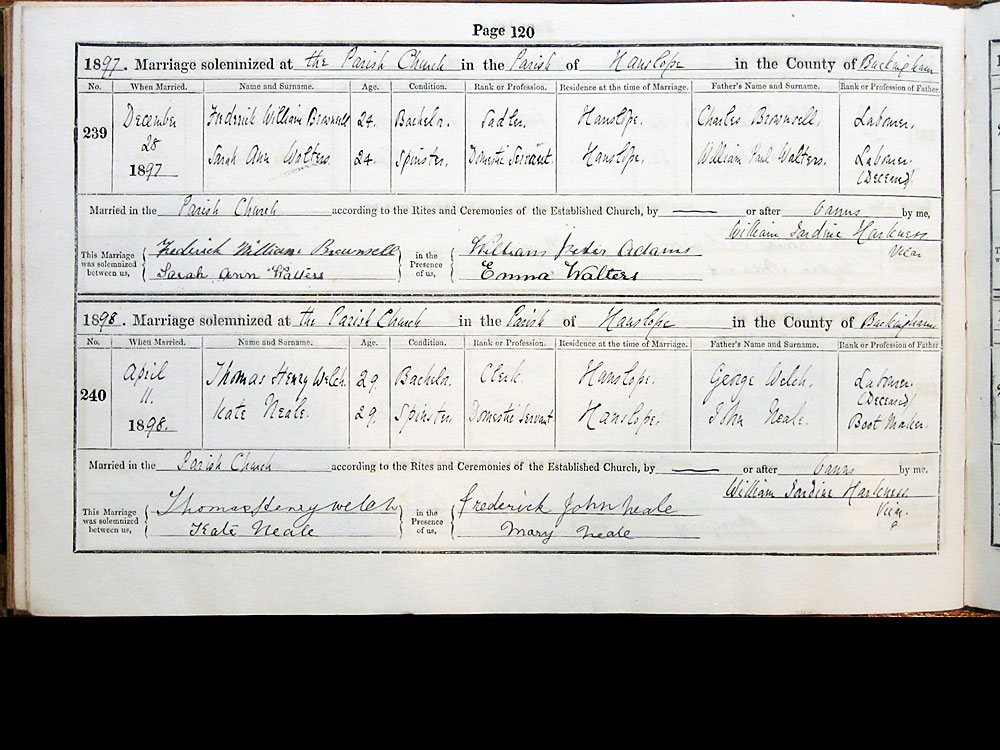 Page 120
1897. Marriage solemnized at the Parish Church in the Parish of Hanslope in the County of Buckingham
No. When Married. Name and Surname. Age. Condition. Rank or Profession. Residence at the time of Marriage. Father's Name and Surname. Rank or Profession of Father
239 December 28 1897
Frederick William Brownsell 24. Bachelor. Sadler. Hanslope. Charles Brownsell. Labourer.
Sarah Ann Walters. 24. Spinster. Domestic Servant. Hanslope. William Paul Walters. Labourer (Deceased)
Married in the Parish Church according to the Rites and Ceremonies of the Established Church, by —— or after banns by me,
William Jardine Harkness
Vicar
This Marriage was solemnized between us,
Frederick William Brownsell
Sarah Ann Walters
in the Presence of us,
William Peter Adams
Emma Walters
1898. Marriage solemnized at the Parish Church in the Parish of Hanslope in the County of Buckingham
No. When Married. Name and Surname. Age. Condition. Rank or Profession. Residence at the time of Marriage. Father's Name and Surname. Rank or Profession of Father
240 April 11. 1898.
Thomas Henry Welch. 29. Bachelor. Clerk. Hanslope. George Welch. Labourer. (Deceased)
Kate Neale. 29. Spinster. Domestic Servant Hanslope. John Neale. Boot Maker.
Married in the Parish Church according to the Rites and Ceremonies of the Established Church, by —— or after banns by me,
William Jardine Harkness
Vicar.
This Marriage was solemnized between us,
Thomas Henry Welch
Kate Neale
in the Presence of us,
Frederick John Neale
Mary Neale